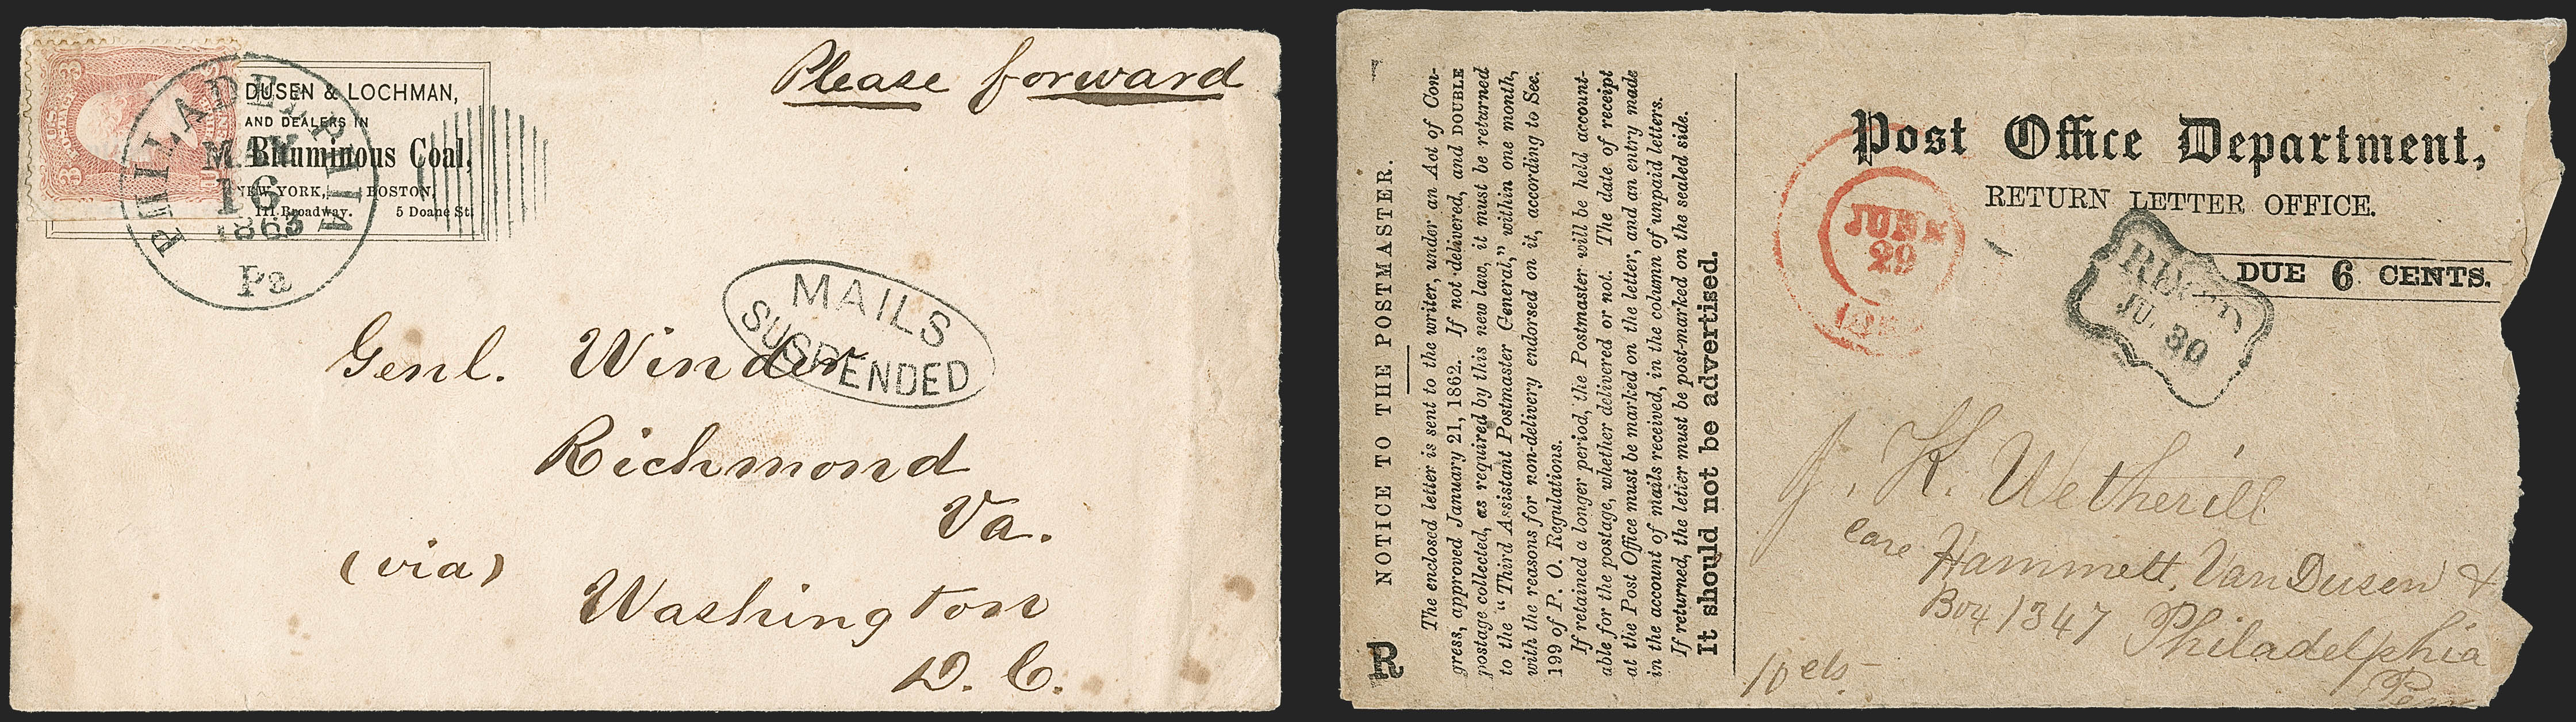 Please forward
DUSEN & LOCHMAN,
AND DEALERS IN
Bituminous Coal,
NEW YORK, BOSTON,
111 Broadway. 5 Doane St.
PHILADELPHIA
MAY
16
1863
Pa
MAILS
SUSPENDED
Genl. Winder
Richmond
Va.
(via)
Washington
D. C.
R
NOTICE TO THE POSTMASTER.
The enclosed letter is sent to the writer, under an Act of Con-
gress, approved January 21, 1862. If not delivered, and DOUBLE
postage collected, as required by this new law, it must be returned
to the "Third Assistant Postmaster General," within one month,
with the reasons for non-delivery endorsed on it, according to Sec.
199 of P. O. Regulations.
If retained a longer period, the Postmaster will be held account-
able for the postage, whether delivered or not. The date of receipt
at the Post Office must be marked on the letter, and an entry made
in the account of mails received, in the column of unpaid letters.
If returned, the letter must be post-marked on the sealed side.
It should not be advertised.
Post Office Department,
RETURN LETTER OFFICE.
DUE 6 CENTS.
JUNE
29
REC'D
30
J. K. Wetherill
Care Hammett, Van Dusen &
Box 1347 Philadelphia